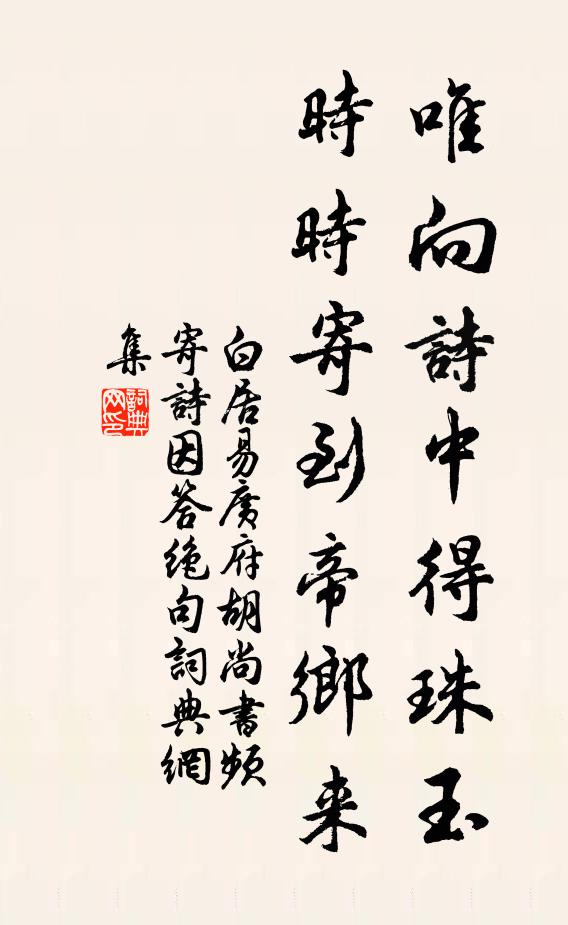 唯向詩中得珠玉
時時寄到帝鄉来
白居易廣府胡尚書頻
寄詩因答绝句詞典網
集
詞典
网印